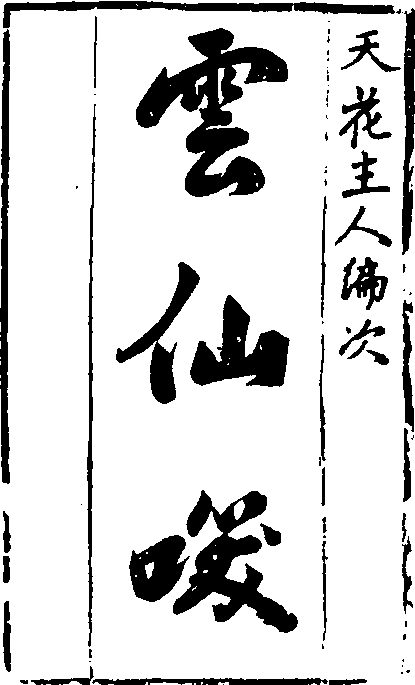 天花主人編次
雲仙嘯